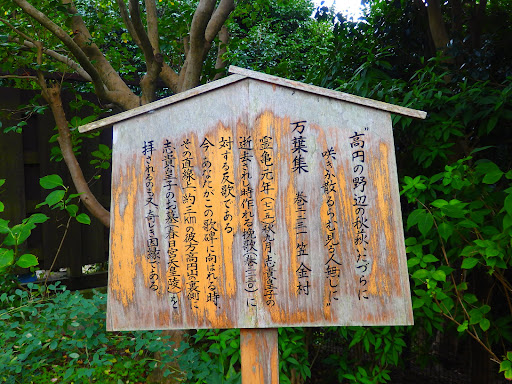 "高円の野辺の秋萩いたづらに
咲きか散るらむ見る人無しに"
万葉集 巻二-二三一 笠 金村
霊亀元年(七一五)秋九月志貴皇子の
逝去された時作れる挽歌(巻二-二三〇)に
対する反歌である。
今、あなたがこの歌碑に向われる時、
その直線上、約三kmの彼方高円山裏側に
志貴皇子のお墓(春日宮天皇陵)を
拝されるのも又、奇しき因縁である。